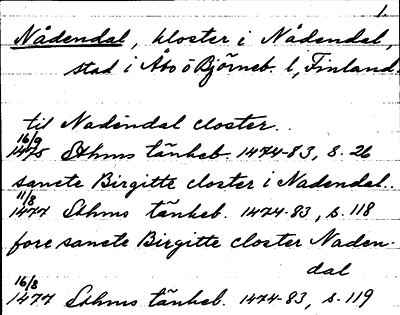 1.
Nådendal, kloster i Nådendal,
stad i Åbo o Björneb. l, Finland.
til Nadendal closter.
16/9
1475 Sthms tänkeb. 1474-83, s. 26
sancte Birgitte closter i Nadendal.
11/8
1477 Sthms tänkeb. 1474-83, s. 118
fore sancte Birgitte closter Naden-
dal
16/8
1477 Sthms tänkeb. 1474-83, s. 119